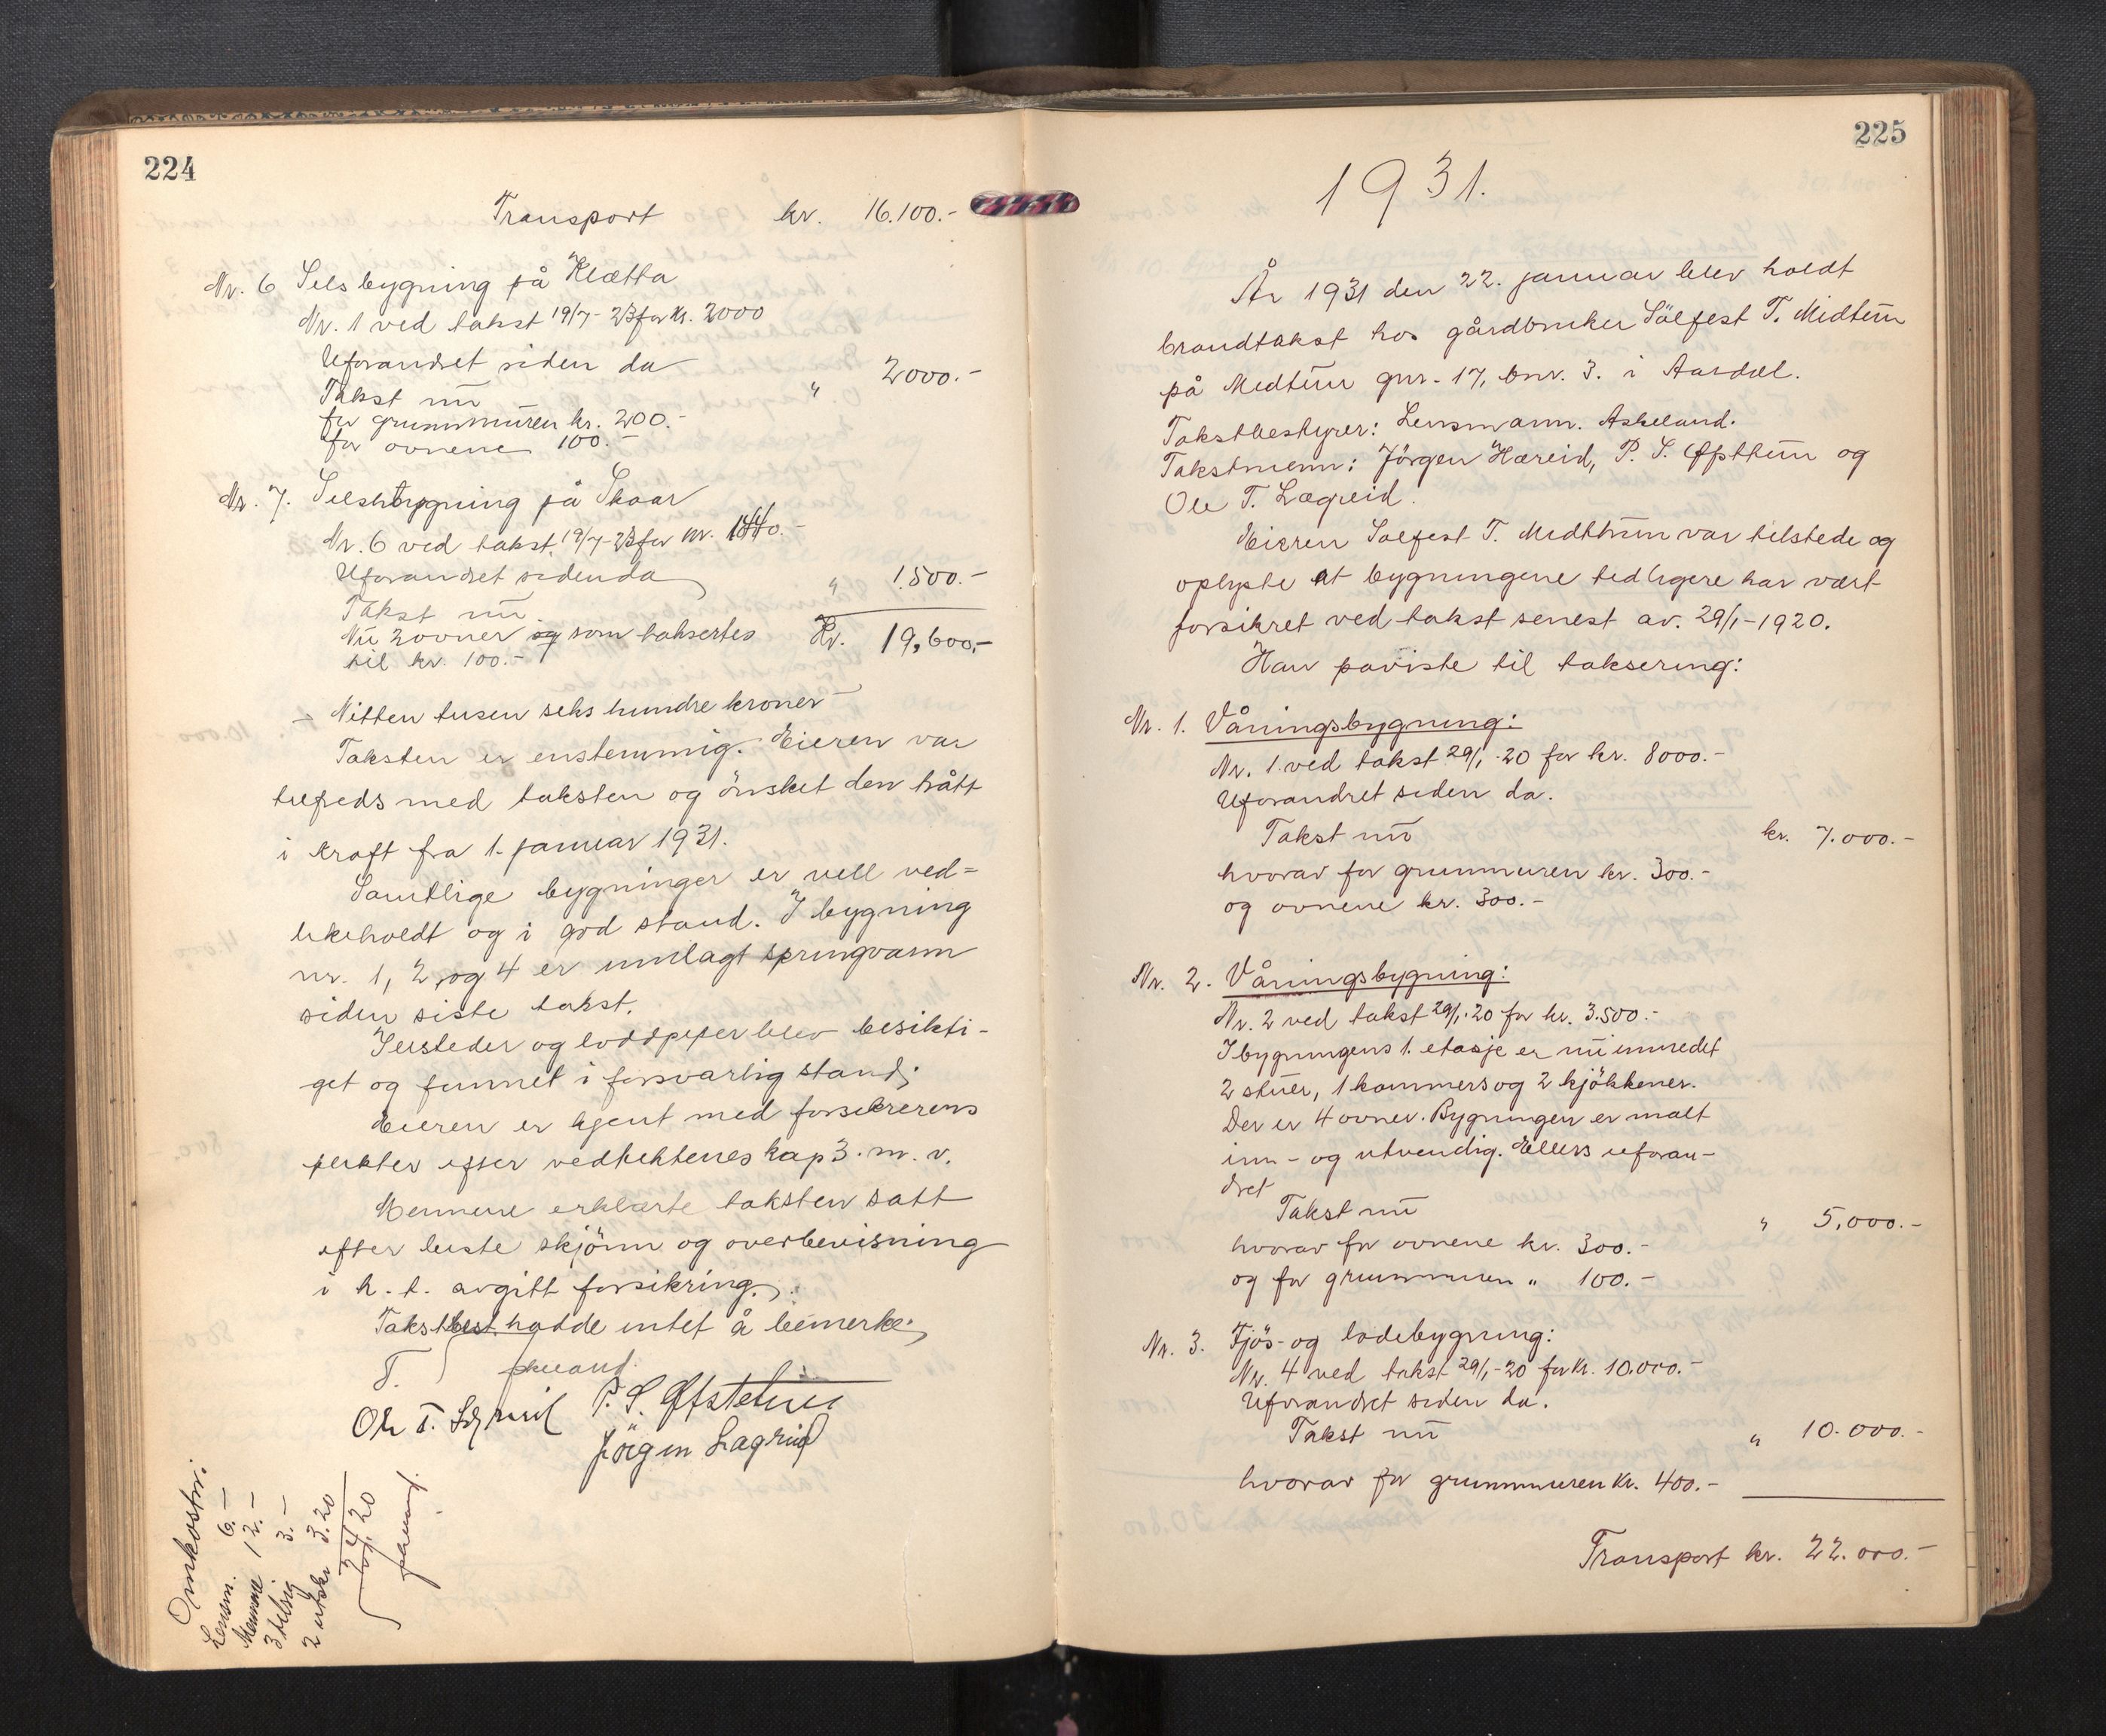 224
Transport kr. 16.100.-
Nr. 6 Selsbygning på Klætta
Nr. 1 ved takst 19/7-23 for kr. 2000
Uforandret siden da
Takst nu " 2000.-
for grunnmuren kr. 200.-
for ovnene 100.-
Nr. 7. Selsbygning på Skaar
Nr. 6 ved takst 19/7-23 for kr.
Uforandret siden da
Takst nu " 1.500.-
Nu 2 ovner som takseres Kr. 19,600,-
til kr. 100.-
- Nitten tusen seks hundre kroner -
Taksten er enstemmig. Eieren var
tilfreds med taksten og önsket den trått
i kraft fra 1. januar 1931.
Samtlige bygninger er vell ved=
likeholdt og i god stand. I bygning
nr. 1, 2, og 4 er innlagt springvann
siden siste takst.
Ildsteder og loddpiper blev besikti-
get og funnet i forsvarlig stand;
Eieren er kjent med forsikrerens
plikter efter vedtektenes kap 3. m. v.
Mennene erklærte taksten satt
efter beste skjönn og overbevisning
i h. t. avgitt forsikring.
Takstbest. hadde intet å bemerke.
Ole T. Lægreid P. S. Ofstehun
Jörgen Lægreid
Omkostn:
Lensm. 6.-
Mennene 12.-
3 3.-
2 utskr 3.20
24,20
225
1931.
År 1931 den 22. januar blev holdt
brandtakst hos gårdbruker Sölfest T. Midtun
på Midtun gnr. 17, bnr. 3. i Aardal.
Takstbestyrer: Lensmann. Askeland.
Takstmenn: Jörgen Hæreid, P. S. Ofsthun og
Ole T. Lægreid.
Eieren Solfest T. Midthun var tilstede og
oplyste at bygningene tidligere har vært
forsikret ved takst senest av. 29/1-1920.
Han påviste til taksering:
Nr. 1. Våningsbygning:
Nr. 1. ved takst 29/1-20 for kr. 8000.-
Uforandret siden da.
Takst nu kr. 7.000.-
hvorav for grunnmuren kr. 300.-
og ovnene kr. 300.-
Nr. 2. Våningsbygning:
Nr. 2 ved takst 29/1-20 for kr. 3.500.-
I bygningens 1. etasje er nu innredet
2 stuer, 1 kammers og 2 kjökkener.
Der er 4 ovner. Bygningen er malt
inn- og utvendig. Ellers uforan-
dret
Takst nu " 5,000.-
hvorav for ovnene kr. 300.-
og for grunnmuren " 100.-
Nr. 3. Fjös- og ladebygning:
Nr. 4 ved takst 29/1-20 for kr. 10.000.-
Uforandret siden da.
Takst nu " 10.000.-
hvorav for grunnmuren kr. 400.-
Transport kr. 22.000.-